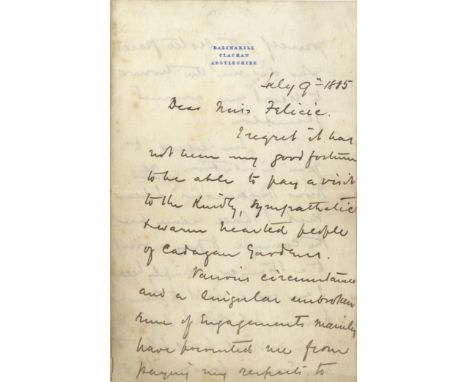 BALINAKILL
CLACHAN
ARGYLESHIRE
July 9th 1885
Dear Miss Felicie.
I regret it has
not been my good fortune
to be able to pay a visit
to the kindly, sympathetic
& warm hearted people
of Cadagan Gardens.
Various circumstances
and a singular unbroken
run of Engagements mainly
have prevented me from
paying my respects to